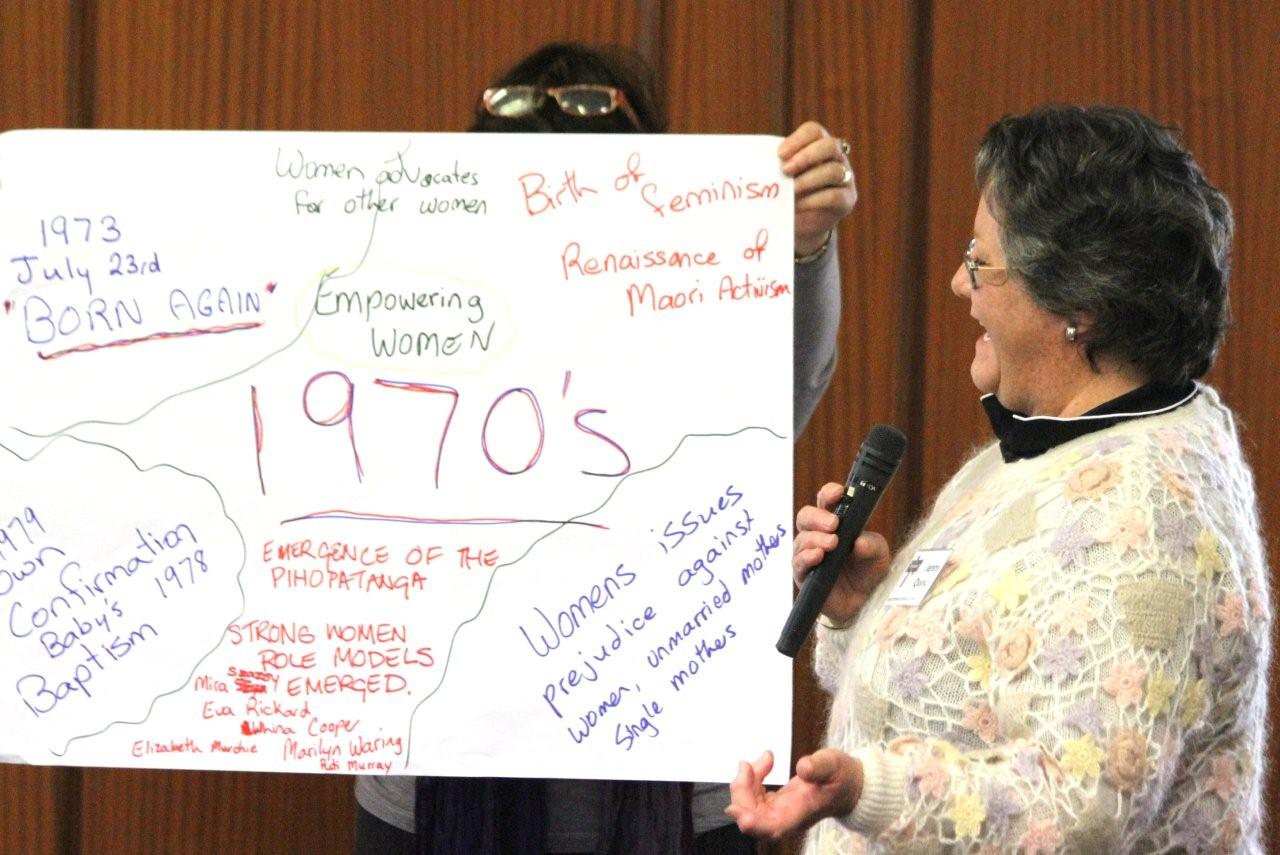 Women advocates
for other women
Birth of
feminism
Renaissance of
Maori Activism
1973
July 23rd
"BORN AGAIN"
Empowering
WOMEN
1970's
1979
own
Confirmation
Baby's 1978
Baptism
EMERGENCE OF THE
PIHOPATANGA
STRONG WOMEN
ROLE MODELS
EMERGED.
Mira
Eva Rickard
Whina Cooper
Elizabeth Murchie
Marilyn Waring
Murray
Womens issues
prejudice against
women, unmarried mothers
single mothers